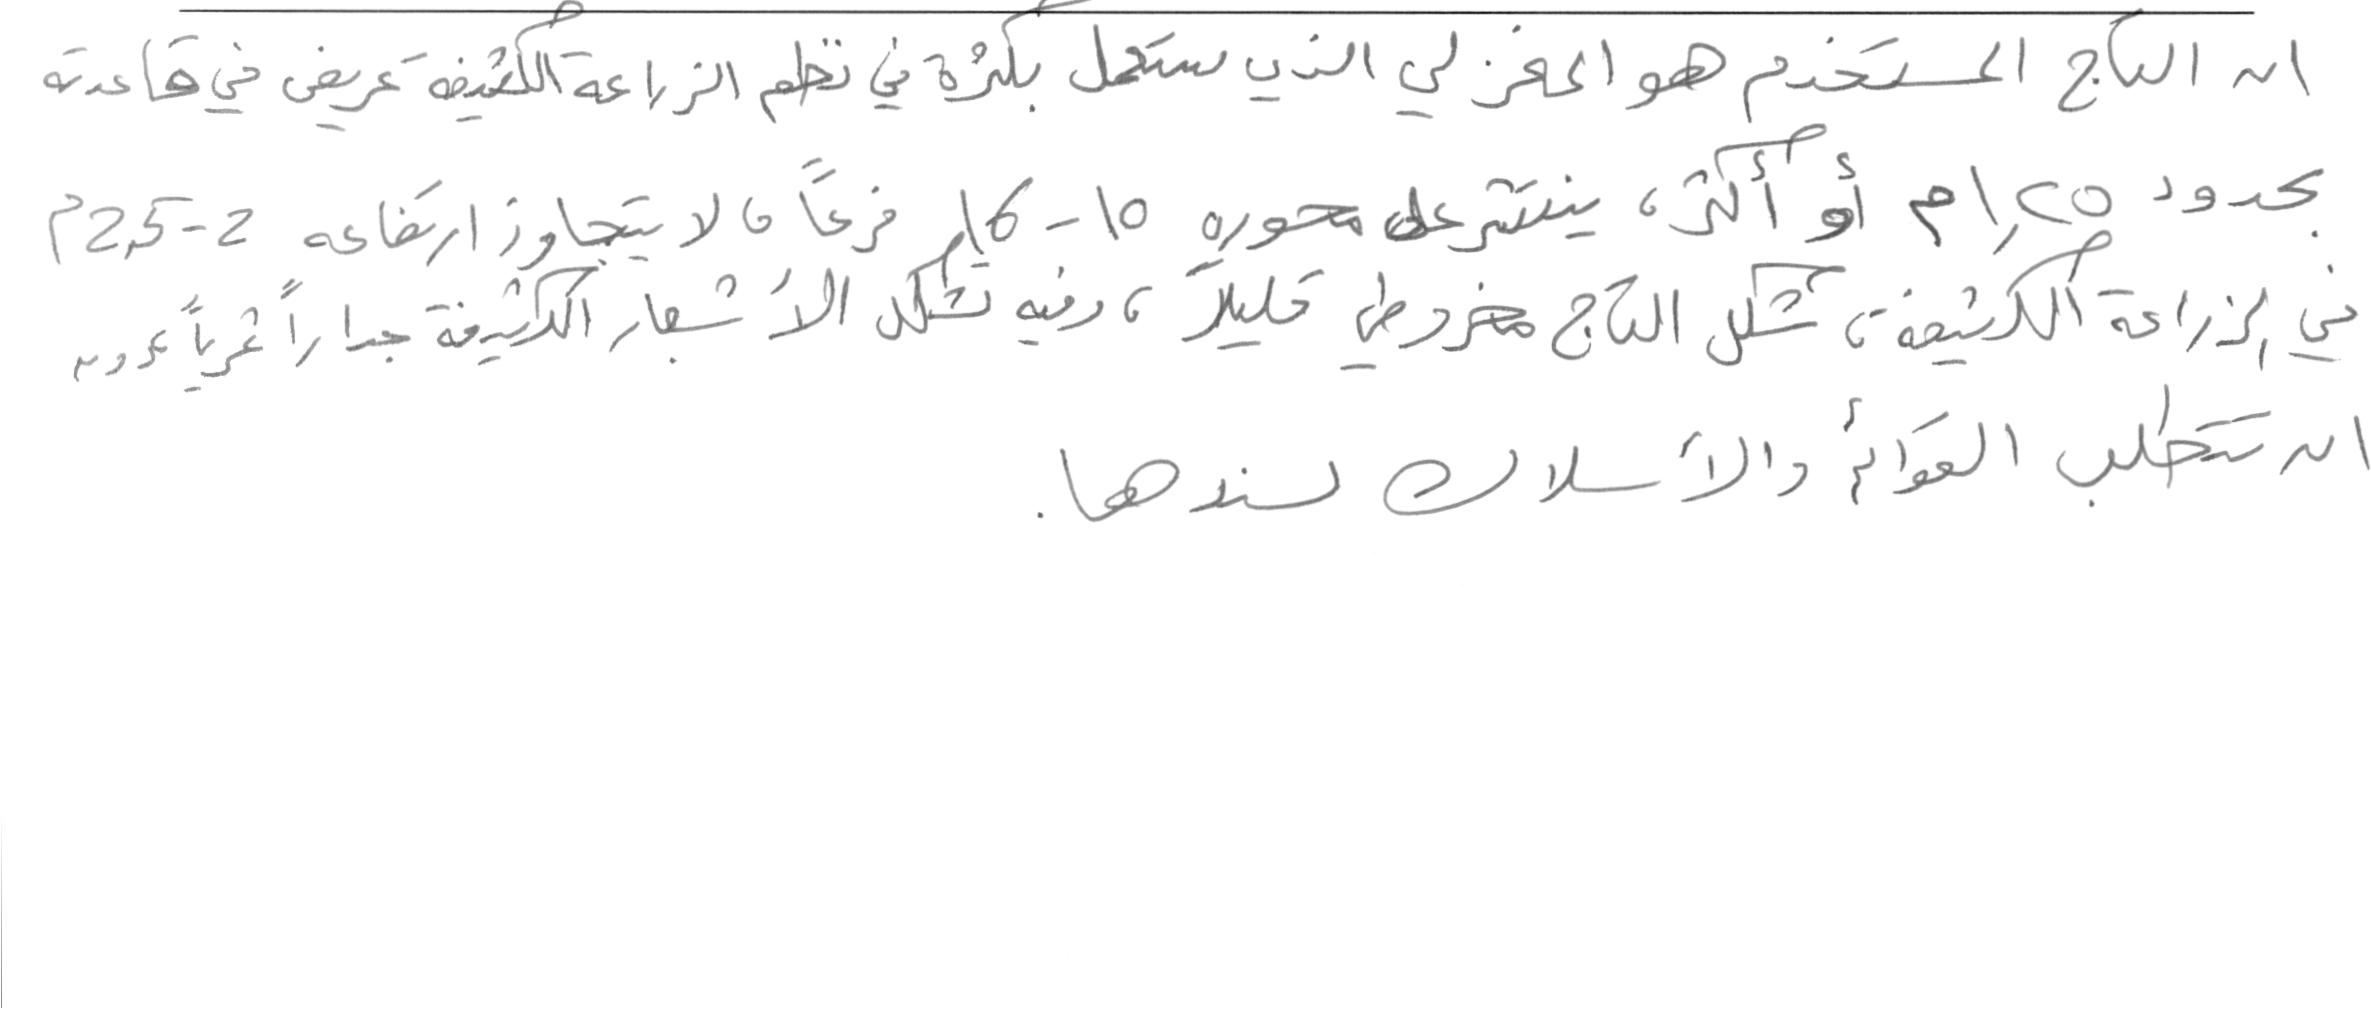 ان التاج المستخدم هو المغزلي الذي يستعمل بكثرة في نظم الزراعة الكثيفة عريض في قاعدته
بحدود 1,25م أو أكثر، ينتشر على محوره 15-16 فرعاً، لا يتجاوز ارتفاعه 2-2,5م
في الزراعة الكثيفة، شكل التاج مخروطي قليلاً، وفيه تشكل الأشجار الكثيفة جداراً ثمرياً دون
ان تتطلب القوائم والأسلاك لسندها.